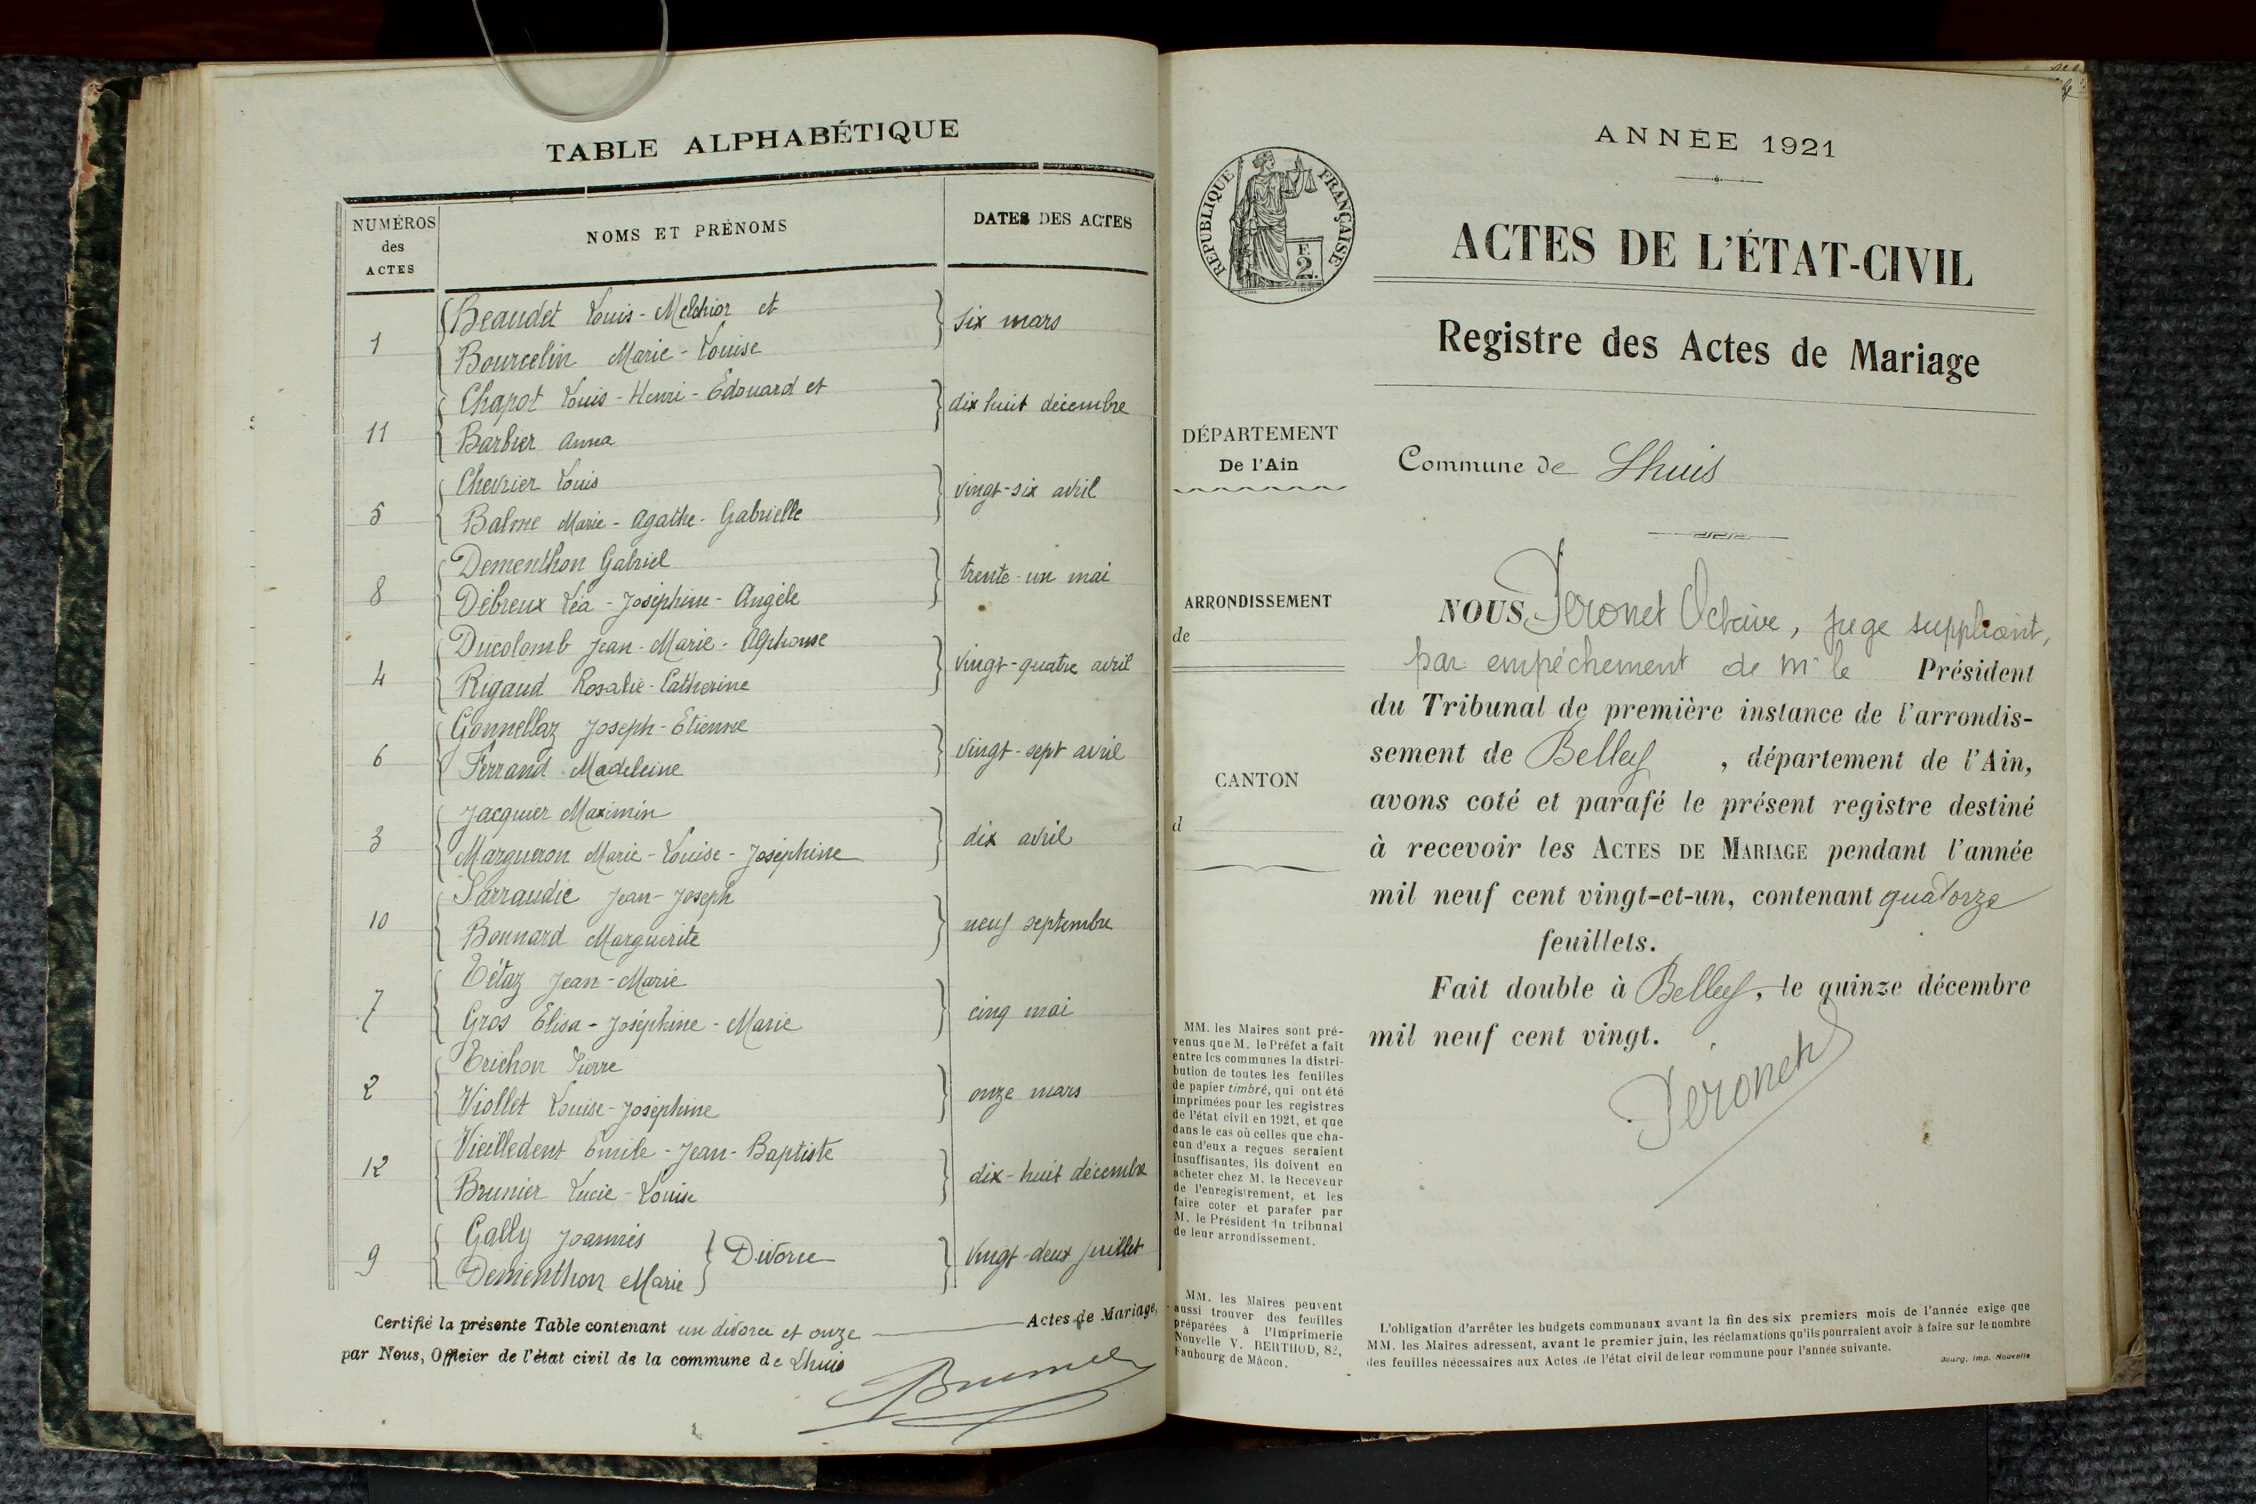 TABLE ALPHABÉTIQUE
NUMÉROS
des
ACTES
NOMS ET PRÉNOMS
DATES DES ACTES
1
Beaudet Louis-Melchior et
Bourcelin Marie-Louise
six mars
11
Chapot Louis-Henri-Edouard et
Barbier Anna
dix huit décembre
5
Chevrier Louis
Balme Marie-Agathe-Gabrielle
vingt-six avril
8
Dementhon Gabriel
Debreux Léa-Joséphine-Angèle
trente-un mai
4
Ducolomb Jean-Marie-Alphonse
Rigaud Rosalie-Catherine
vingt-quatre avril
6
Gonnellaz Joseph-Etienne
Ferrand Madeleine
vingt-sept avril
3
Jacquier Maximin
Margueron Marie-Louise-Joséphine
dix avril
10
Sarraudie Jean-Joseph
Bonnard Marguerite
neuf septembre
7
Tétaz Jean-Marie
Gros Elisa-Joséphine-Marie
cinq mai
2
Trichon Pierre
Viollet Louise-Joséphine
onze mars
12
Vieilledent Emile-Jean-Baptiste
Brunier Lucie-Louise
dix-huit décembre
9
Gally Joannès
Dementhon Marie
Divorce
vingt-deux juillet
Certifié la présente Table contenant un divorce et onze Actes de Mariage,
par Nous, Officier de l'état civil de la commune de Lhuis
ANNÉE 1921
RÉPUBLIQUE FRANÇAISE
F.
2.
ACTES DE L'ÉTAT-CIVIL
Registre des Actes de Mariage
DÉPARTEMENT
De l'Ain
Commune de Lhuis
ARRONDISSEMENT
de
CANTON
d
NOUS Peronet Octave, juge suppléant,
par empêchement de Mr le Président
du Tribunal de première instance de l'arrondis-
sement de Belley, département de l'Ain,
avons coté et parafé le présent registre destiné
à recevoir les ACTES DE MARIAGE pendant l'année
mil neuf cent vingt-et-un, contenant quatorze
feuillets.
Fait double à Belley, le quinze décembre
mil neuf cent vingt.
Péronet
MM. les Maires sont pré-
venus que M. le Préfet a fait
entre les communes la distri-
bution de toutes les feuilles
de papier timbré, qui ont été
imprimées pour les registres
de l'état civil en 1921, et que
dans le cas où celles que cha-
cun d'eux a reçues seraient
insuffisantes, ils doivent en
acheter chez M. le Receveur
de l'enregistrement, et les
faire coter et parafer par
M. le Président du tribunal
de leur arrondissement.
MM. les Maires peuvent
aussi trouver des feuilles
préparées à l'Imprimerie
Nouvelle V. BERTHOD, 82,
Faubourg de Mâcon.
L'obligation d'arrêter les budgets communaux avant la fin des six premiers mois de l'année exige que
MM. les Maires adressent, avant le premier juin, les réclamations qu'ils pourraient avoir à faire sur le nombre
des feuilles nécessaires aux Actes de l'état civil de leur commune pour l'année suivante.
Bourg, Imp. Nouvelle